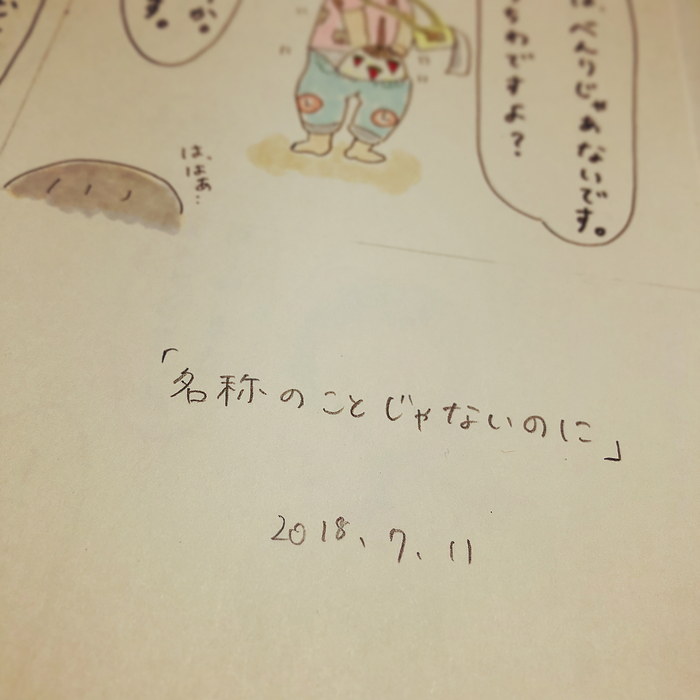 は、べんりじゃあないです。
ちわですよ？
か。
す。
は、
はあ…
「名称のことじゃないのに」
2018、7、11